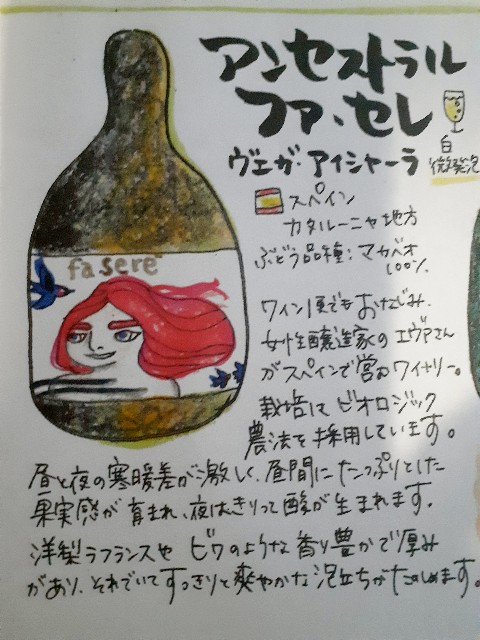 アンセストラル
ファ・セレ
白
微発泡
ヴェガ・アイシャーラ
スペイン
カタルーニャ地方
ぶどう品種:マカベオ
100%
fa sere
ワイン便でもおなじみ、
女性醸造家のエヴァさん
がスペインで営むワイナリー。
栽培はビオロジック
農法を採用しています。
昼と夜の寒暖差が激しく、昼間にたっぷりとした
果実感が育まれ、夜はきりっと酸が生まれます。
洋梨ラフランスや ビワのような香り豊かで厚み
があり、それでいてすっきりと爽やかな泡立ちがたのしめます。